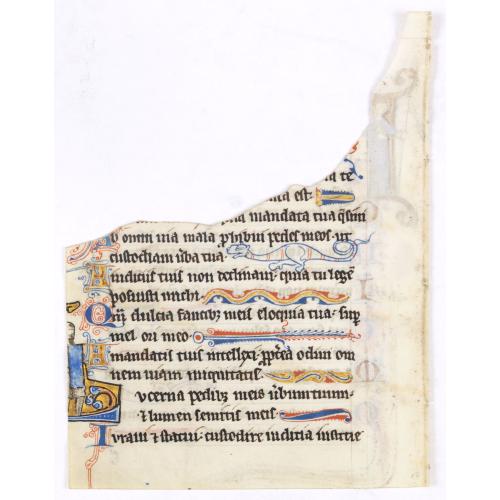 ta te
ta est
ia mandata tua q̄siui
Ab omni uia mala ꝓhibui pedes meos ut
custodiam ūba tua
A iudiciis tuis non declinaui quia tu legē
posuisti michi
Qm̄ dulcia faucibꝫ meis eloquia tua sup̄
mel ori meo
A mandatis tuis intellexi ꝓpt̄ea odiui om
nem uiam iniquitatis
ucerna pedibꝫ meis ūbum tuum
⁊ lumen semitis meis
Iuraui ⁊ statui custodire iudicia iusticie